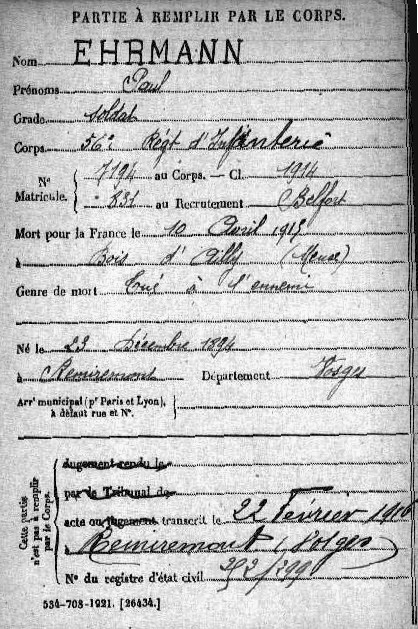 PARTIE À REMPLIR PAR LE CORPS.
Nom EHRMANN
Prénoms Paul
Grade Soldat
Corps 56e Régt d'Infanterie
N° Matricule. 7194 au Corps. — Cl. 1914
831 au Recrutement Belfort
Mort pour la France le 10 Avril 1915
à Bois d'Ailly (Meuse)
Genre de mort Tué à l'ennemi
Né le 23 Décembre 1894
à Remiremont Département Vosges
Arrt municipal (pr Paris et Lyon),
à défaut rue et N°.
Cette partie
n'est pas à remplir
par le Corps.
Jugement rendu le
par le Tribunal de
acte ou jugement transcrit le 22 Février 1916
à Remiremont (Vosges)
N° du registre d'état civil
534-708-1921. [26434.]